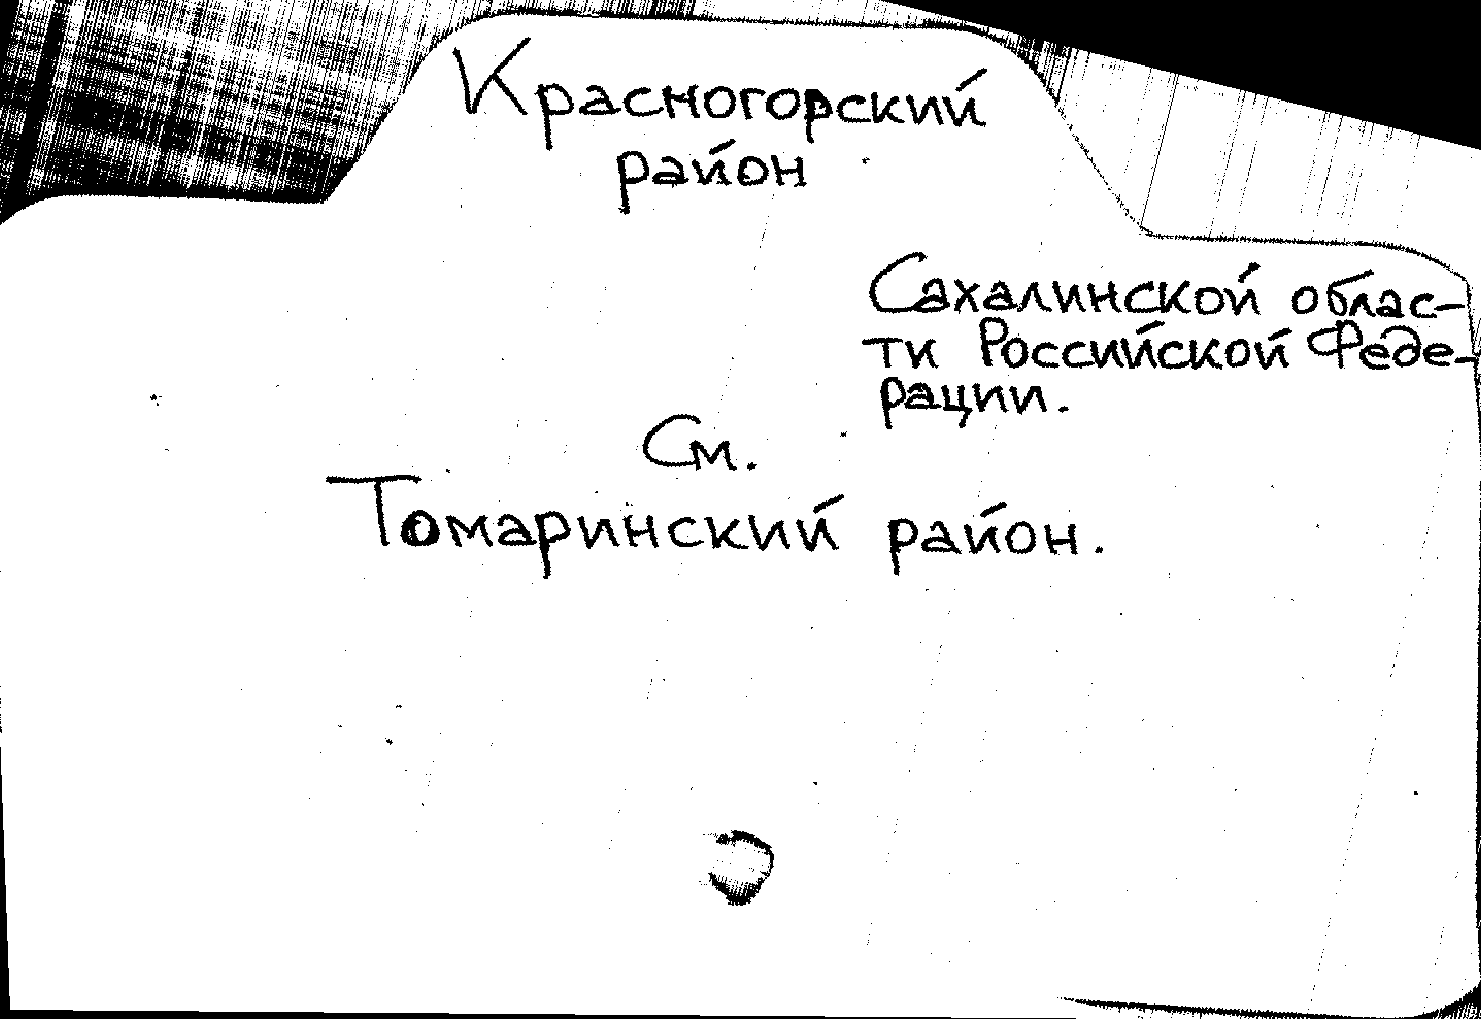 Красногорский
район
Сахалинской облас-
ти Российской Феде-
рации.
См.
Томаринский район.